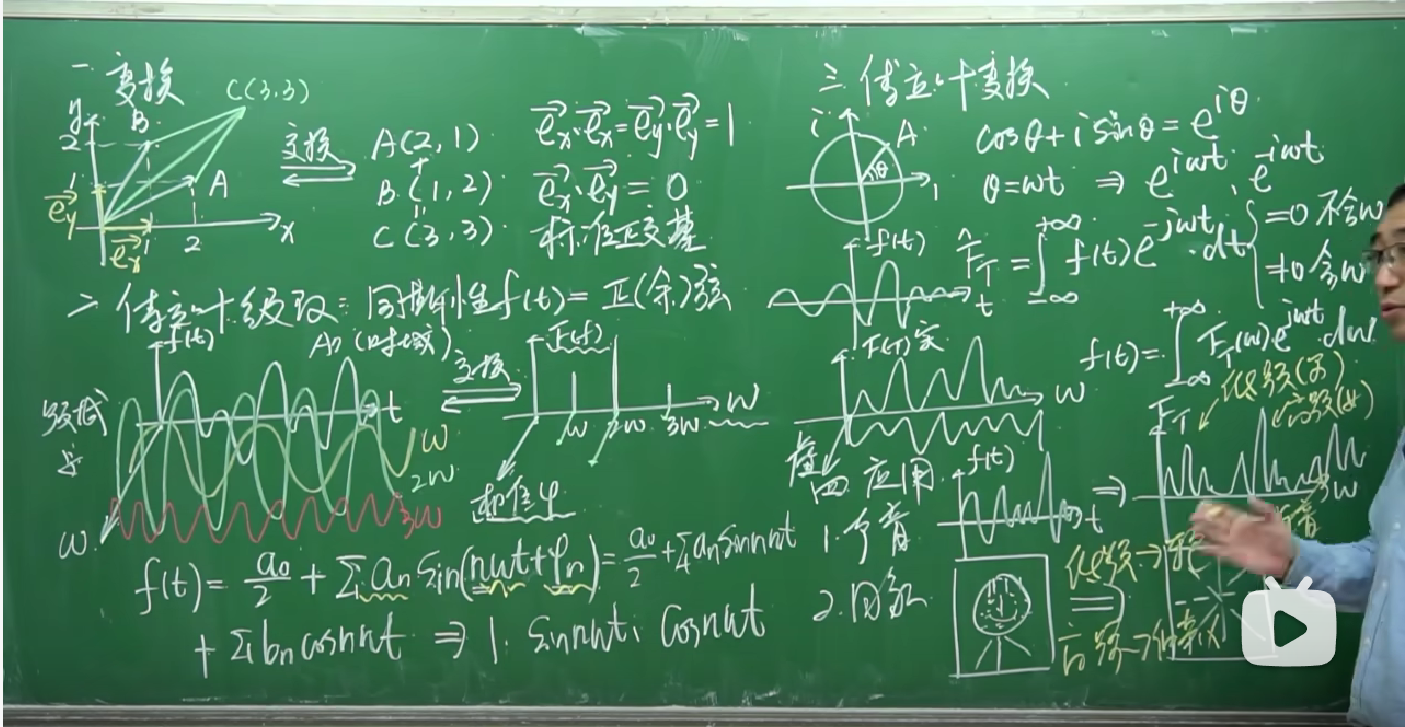 一 变换
C(3,3)
y
B
2
1
A
e_y
e_x
1
2
x
变换
A(2,1)
+
B(1,2)
=
C(3,3)
e_x·e_x=e_y·e_y=1
e_x·e_y=0
标准正交基
二 傅立叶级数:周期性f(t)=正(余)弦
f(t)
An(时域)
t
ω
2ω
3ω
ω
变换
F(f)
ω
2ω
3ω
ω
相位φ
f(t)=a₀/2+∑aₙsin(nωt+φₙ)=a₀/2+∑aₙsinnωt
+∑bₙcosnωt ⇒ 1, sinnωt, cosnωt
三 傅立叶变换
i
A
θ
1
cosθ+isinθ=e^{iθ}
θ=ωt ⇒ e^{iωt}, e^{-iωt}
f(t)
t
F̂_T=∫_{-∞}^{+∞}f(t)e^{-jωt}·dt
=0 不含ω
≠0 含ω
f(t)=∫_{-∞}^{+∞}F_T(ω)e^{jωt}·dω
F(T)实
ω
虚
四 应用
1.
f(t)
t
⇒
F_T
低频(男)
高频(女)
ω
2.图像
低频→
⇒
高频→